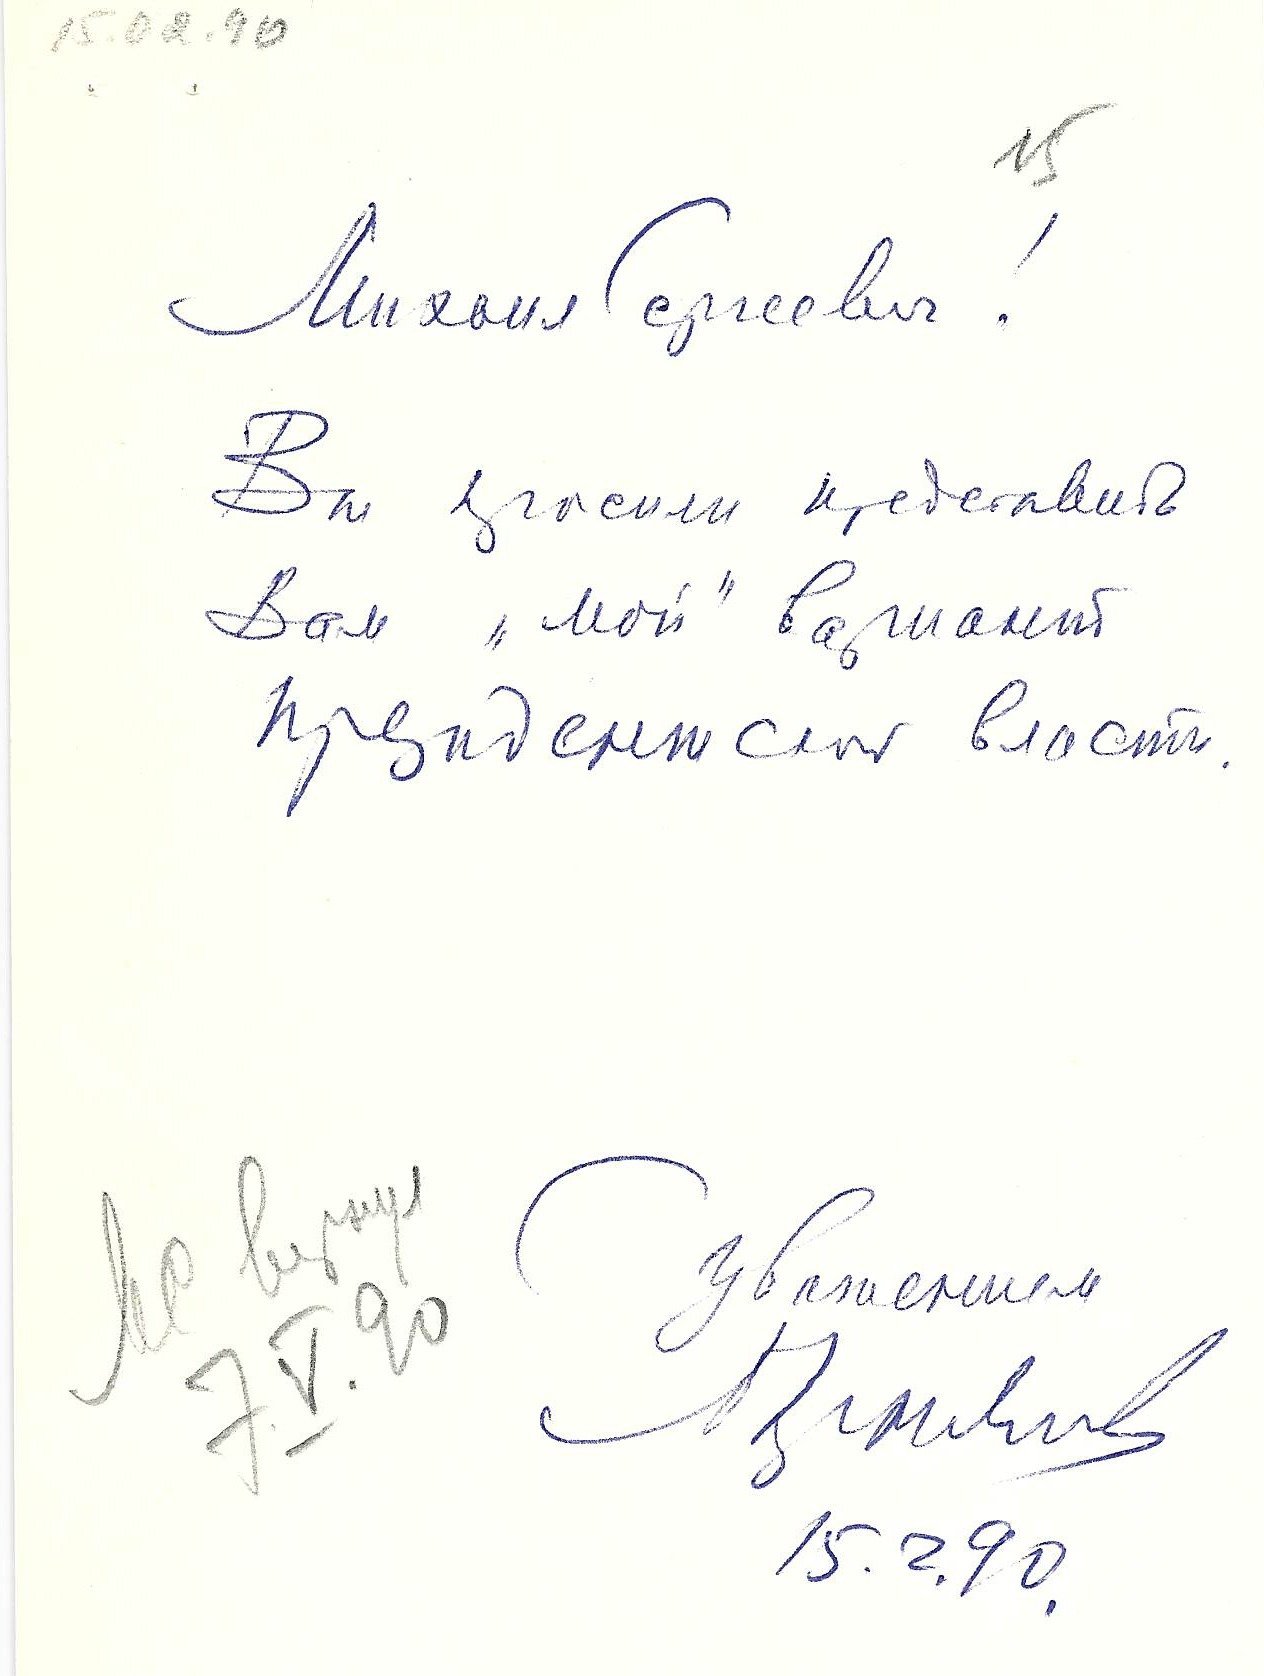 15.02.90
15
Михаил Сергеевич!
Вы просили представить
Вам „мой" вариант
Президентской власти.
С уважением
МС вернул
7.V.90
15.2.90.